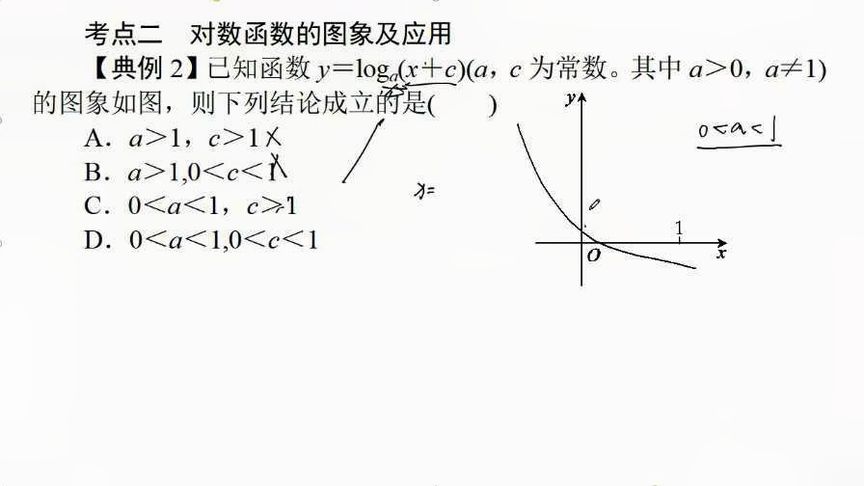 考点二 对数函数的图象及应用
【典例2】已知函数y=logₐ(x+c)(a, c为常数。其中a>0, a≠1)
的图象如图，则下列结论成立的是( )
A. a>1, c>1 ×
B. a>1,0<c<1 ×
C. 0<a<1, c>1
D. 0<a<1,0<c<1
x=
0<a<1
y
1
O
x